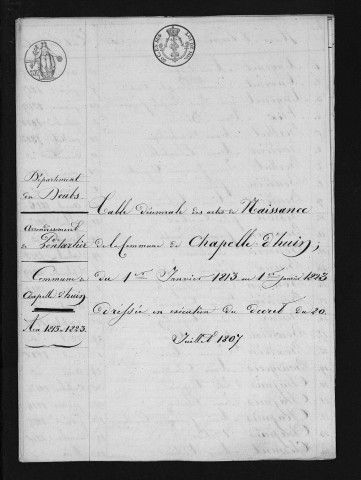 Département
du Doubs
Arrondissement
de Pontarlier
Commune de
Chapelle d'huin
An 1813 à 1823.
Table Décennale des actes de Naissance
de la Commune de Chapelle d'huin,
du 1er Janvier 1813 au 1er Janvier 1823
dressée en exécution du décret du 20
Juillet 1807